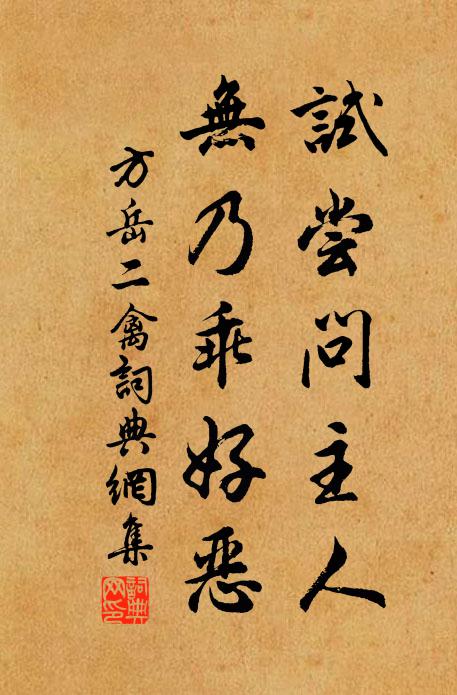 試尝問主人
無乃乖好惡
方岳二禽詞典網集
詞典
网印